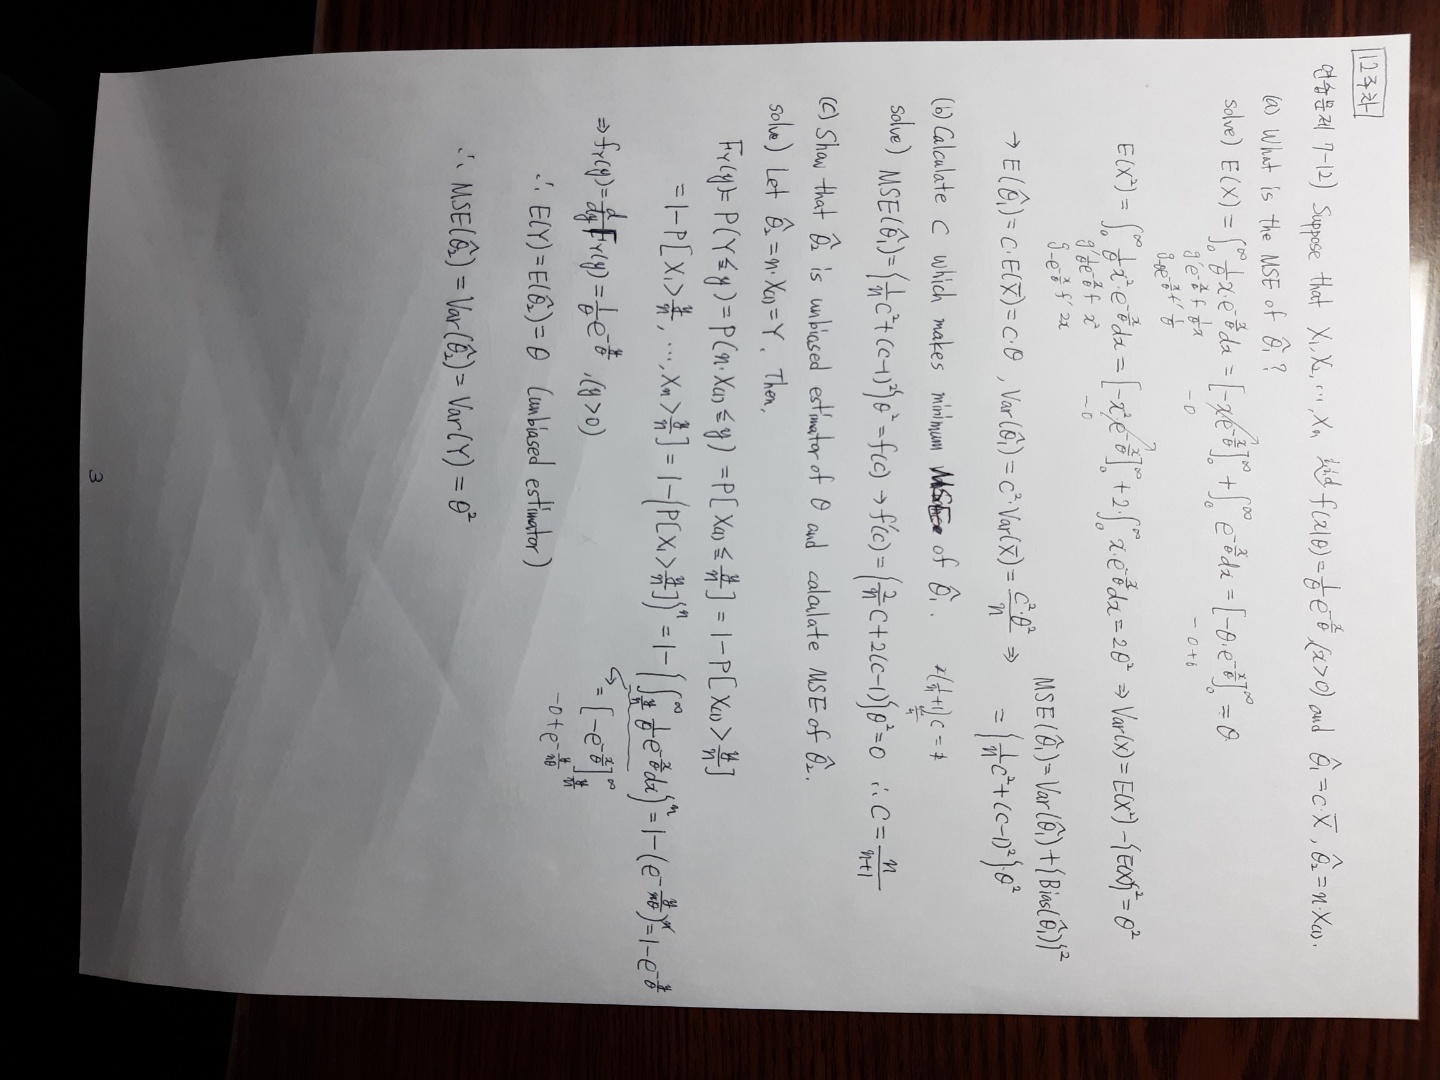 12주차
연습문제 7-12) Suppose that X₁, X₂, ⋯, Xₙ iid f(x|θ) = 1/θ e^(-x/θ) (x>0) and θ̂₁ = c·X̄, θ̂₂ = n·X₍₁₎.
(a) What is the MSE of θ̂₁?
solve) E(X) = ∫₀^∞ 1/θ x·e^(-x/θ) dx = [-x·e^(-x/θ)]₀^∞ + ∫₀^∞ e^(-x/θ) dx = [-θ·e^(-x/θ)]₀^∞ = θ
g' e^(-x/θ) f 1/θ x
-0
-0+θ
g -θe^(-x/θ) f' 1/θ
E(X²) = ∫₀^∞ 1/θ x²·e^(-x/θ) dx = [-x²·e^(-x/θ)]₀^∞ + 2·∫₀^∞ x·e^(-x/θ) dx = 2θ² ⇒ Var(X) = E(X²) - {E(X)}² = θ²
g' 1/θ e^(-x/θ) f x²
-0
g -e^(-x/θ) f' 2x
MSE(θ̂₁) = Var(θ̂₁) + {Bias(θ̂₁)}²
→ E(θ̂₁) = c·E(X̄) = c·θ, Var(θ̂₁) = c²·Var(X̄) = c²·θ²/n ⇒ = {1/n c² + (c-1)²}·θ²
(b) Calculate C which makes minimum MSE of θ̂₁.
solve) MSE(θ̂₁) = {1/n c² + (c-1)²}θ² = f(c) → f'(c) = {2/n c + 2(c-1)}θ² = 0 ∴ C = n/(n+1)
(c) Show that θ̂₂ is unbiased estimator of θ and calculate MSE of θ̂₂.
solve) Let θ̂₂ = n·X₍₁₎ = Y. Then,
F_Y(y) = P(Y ≤ y) = P(n·X₍₁₎ ≤ y) = P[X₍₁₎ ≤ y/n] = 1 - P[X₍₁₎ > y/n]
= 1 - P[X₁ > y/n, ⋯, Xₙ > y/n] = 1 - {P[X₁ > y/n]}ⁿ = 1 - {∫_(y/n)^∞ 1/θ e^(-x/θ) dx}ⁿ = 1 - (e^(-y/nθ))ⁿ = 1 - e^(-y/θ)
= [-e^(-x/θ)]_(y/n)^∞
-0 + e^(-y/nθ)
⇒ f_Y(y) = d/dy F_Y(y) = 1/θ e^(-y/θ), (y>0)
∴ E(Y) = E(θ̂₂) = θ (unbiased estimator)
∴ MSE(θ̂₂) = Var(θ̂₂) = Var(Y) = θ²
3